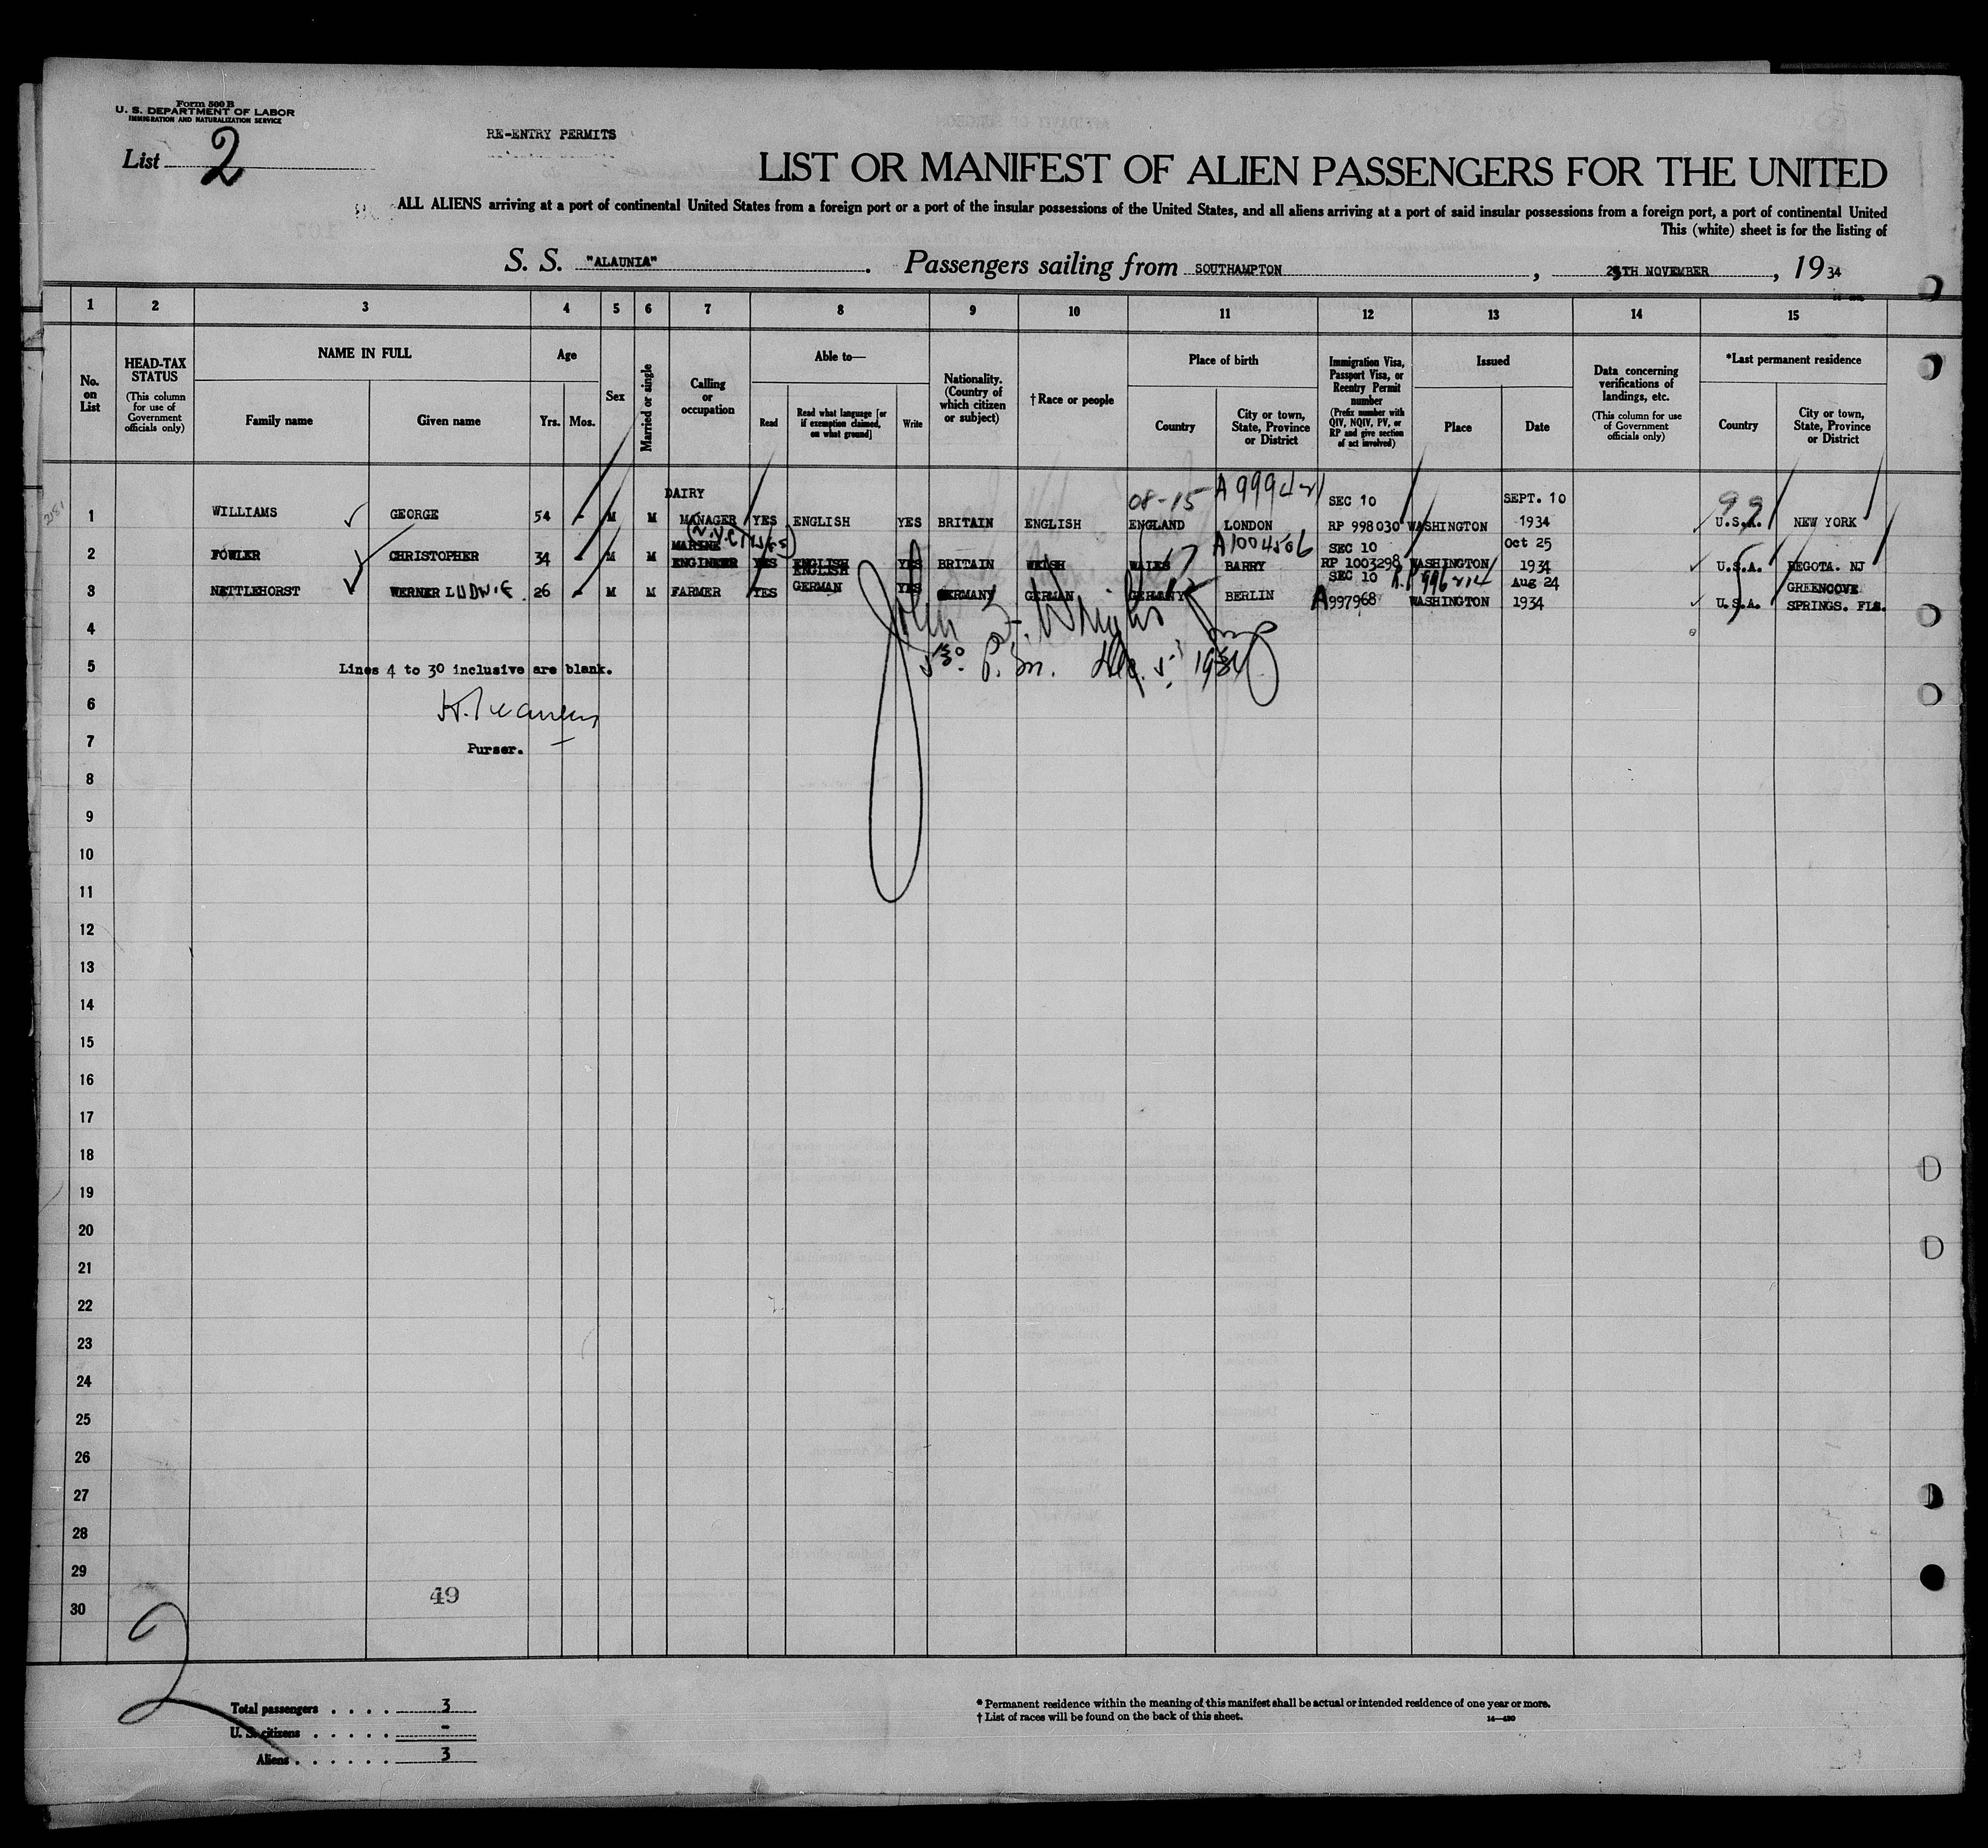 Form 500 B
U. S. DEPARTMENT OF LABOR
IMMIGRATION AND NATURALIZATION SERVICE
List 2
RE-ENTRY PERMITS
LIST OR MANIFEST OF ALIEN PASSENGERS FOR THE UNITED
ALL ALIENS arriving at a port of continental United States from a foreign port or a port of the insular possessions of the United States, and all aliens arriving at a port of said insular possessions from a foreign port, a port of continental United
This (white) sheet is for the listing of
S. S. "ALAUNIA". Passengers sailing from SOUTHAMPTON, TH NOVEMBER, 1934
1 2 3 4 5 6 7 8 9 10 11 12 13 14 15
No. on List
HEAD-TAX STATUS
(This column for use of Government officials only)
NAME IN FULL
Family name
Given name
Age
Yrs. Mos.
Sex
Married or single
Calling or occupation
Able to—
Read
Read what language [or if exemption claimed, on what ground]
Write
Nationality. (Country of which citizen or subject)
†Race or people
Place of birth
Country
City or town, State, Province or District
Immigration Visa, Passport Visa, or Reentry Permit number
(Prefix number with QIV, NQIV, PV, or RP and give section of act involved)
Issued
Place
Date
Data concerning verifications of landings, etc.
(This column for use of Government officials only)
*Last permanent residence
Country
City or town, State, Province or District
1 WILLIAMS GEORGE 54 - M M DAIRY MANAGER YES ENGLISH YES BRITAIN ENGLISH 08-15 ENGLAND LONDON SEC 10 RP 998030 WASHINGTON SEPT. 10 1934 99 U.S.A. NEW YORK
2 FOWLER CHRISTOPHER 34 - M M MARINE ENGINEER YES ENGLISH YES BRITAIN WELSH WALES A1004506 BARRY SEC 10 RP 1003298 WASHINGTON Oct 25 1934 U.S.A. REGOTA. NJ
3 NETTLEHORST WERNER LUDWIG 26 - M M FARMER YES ENGLISH GERMAN YES GERMANY GERMAN GERMANY BERLIN SEC 10 A997968 WASHINGTON Aug 24 1934 U.S.A. GREENCOVE SPRINGS. FLS.
4
5 Lines 4 to 30 inclusive are blank.
5 30 P.m. Dec. 5 1934
6
7 Purser.
8
9
10
11
12
13
14
15
16
17
18
19
20
21
22
23
24
25
26
27
28
29
30
49
2
Total passengers . . . . 3
U. S. citizens . . . . . -
Aliens . . . . . . 3
* Permanent residence within the meaning of this manifest shall be actual or intended residence of one year or more.
† List of races will be found on the back of this sheet.
14—430